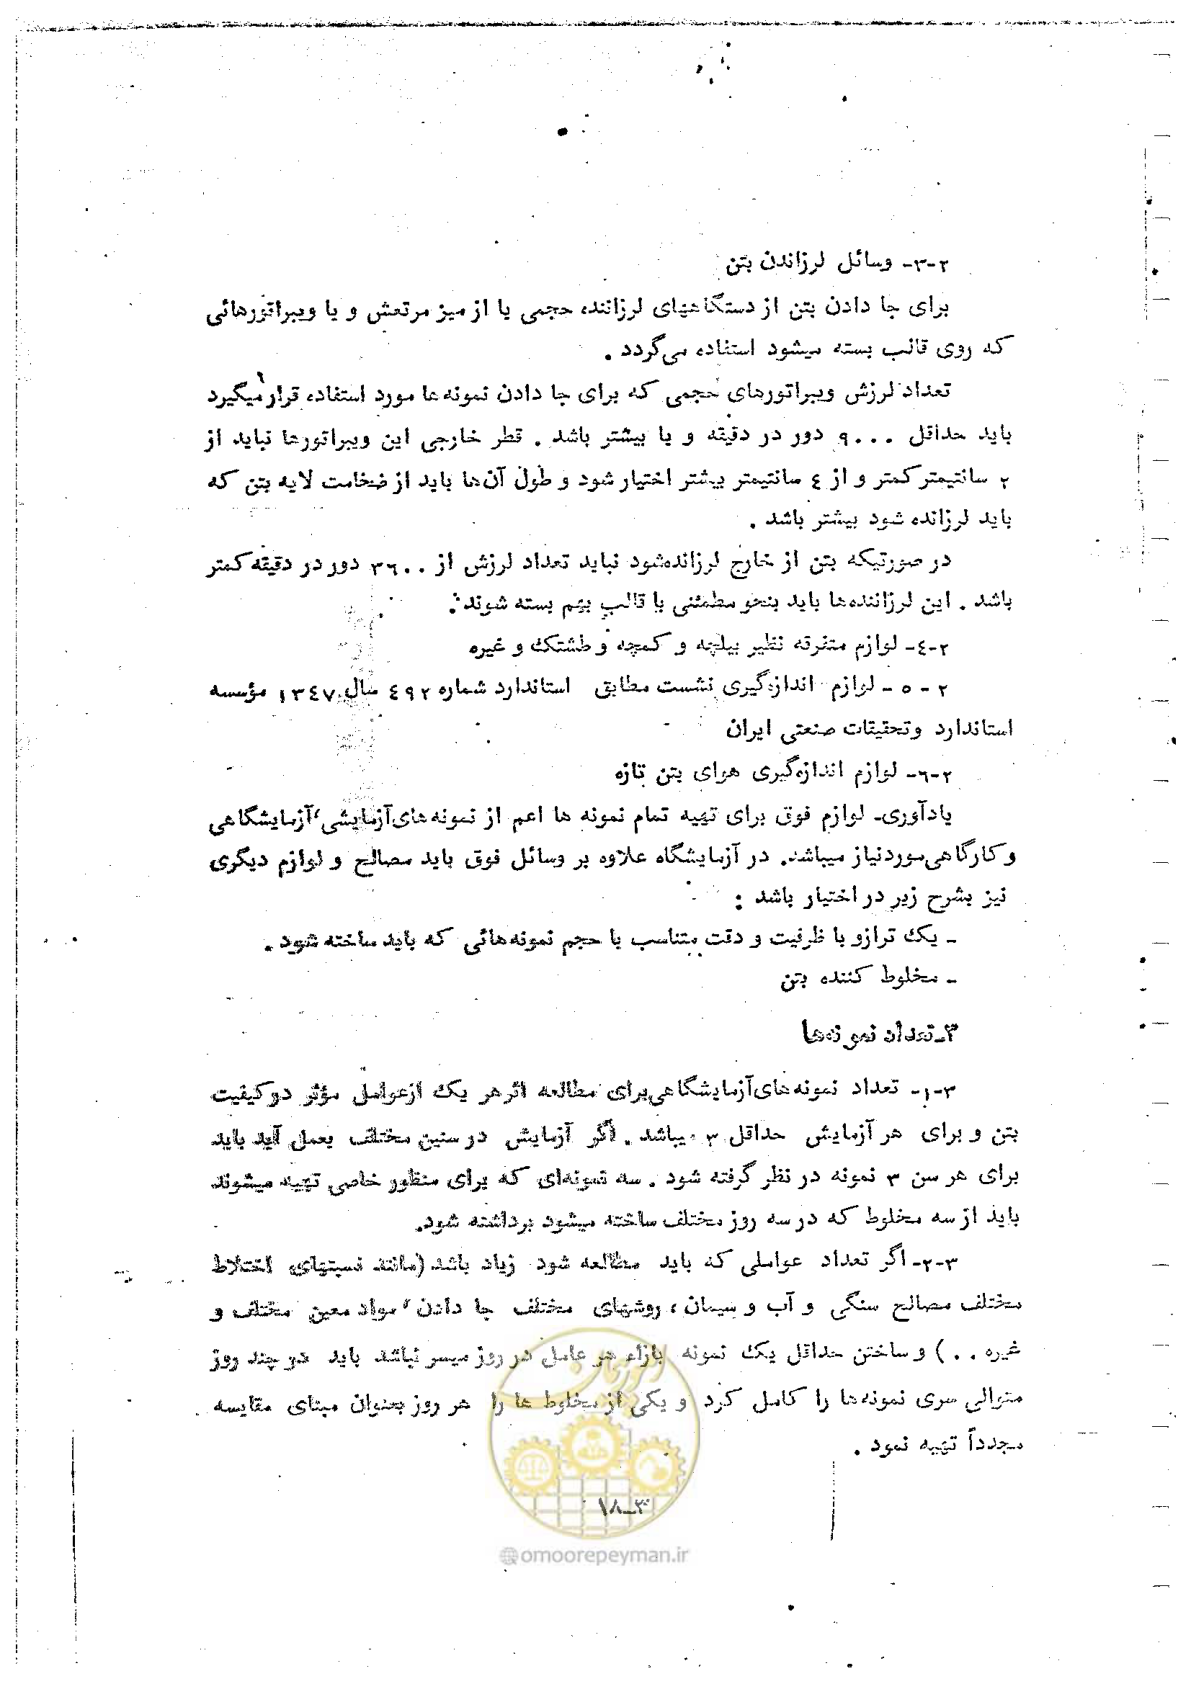 ۲-۳- وسائل لرزاندن بتن
برای جا دادن بتن از دستگاههای لرزاننده حجمی یا از میز مرتعش و یا ویبراتورهائی
که روی قالب بسته میشود استفاده می‌گردد .
تعداد لرزش ویبراتورهای حجمی که برای جا دادن نمونه ها مورد استفاده قرار میگیرد
باید حداقل ۹۰۰۰ دور در دقیقه و یا بیشتر باشد . قطر خارجی این ویبراتورها نباید از
۲ سانتیمتر کمتر و از ٤ سانتیمتر بیشتر اختیار شود و طول آن‌ها باید از ضخامت لایه بتن که
باید لرزانده شود بیشتر باشد .
در صورتیکه بتن از خارج لرزانده‌شود نباید تعداد لرزش از ۳٦۰۰ دور در دقیقه کمتر
باشد . این لرزاننده‌ها باید بنحو مطمئنی با قالب بهم بسته شوند .
۲-٤- لوازم متفرقه نظیر بیلچه و کمچه و طشتک و غیره
۲ - ٥ - لوازم اندازه‌گیری نشست مطابق استاندارد شماره ٤۹۲ سال ۱۳٤۷ مؤسسه
استاندارد و تحقیقات صنعتی ایران
۲-٦- لوازم اندازه‌گیری هوای بتن تازه
یادآوری- لوازم فوق برای تهیه تمام نمونه ها اعم از نمونه‌های آزمایشی، آزمایشگاهی
و کارگاهی موردنیاز میباشد. در آزمایشگاه علاوه بر وسائل فوق باید مصالح و لوازم دیگری
نیز بشرح زیر در اختیار باشد :
- یک ترازو با ظرفیت و دقت متناسب با حجم نمونه‌هائی که باید ساخته شود .
- مخلوط کننده بتن
۳-تعداد نمونه‌ها
۳-۱- تعداد نمونه‌های آزمایشگاهی برای مطالعه اثر هر یک از عوامل مؤثر در کیفیت
بتن و برای هر آزمایش حداقل ۳ میباشد . اگر آزمایش در سنین مختلف بعمل آید باید
برای هر سن ۳ نمونه در نظر گرفته شود . سه نمونه‌ای که برای منظور خاصی تهیه میشوند
باید از سه مخلوط که در سه روز مختلف ساخته میشود برداشته شود.
۳-۲- اگر تعداد عواملی که باید مطالعه شود زیاد باشد (مانند نسبتهای اختلاط
مختلف مصالح سنگی و آب و سیمان ، روشهای مختلف جا دادن ، مواد معین مختلف و
غیره ..) و ساختن حداقل یک نمونه بازاء هر عامل در روز میسر نباشد باید در چند روز
متوالی سری نمونه‌ها را کامل کرد و یکی از مخلوط ها را هر روز بعنوان مبنای مقایسه
مجدداً تهیه نمود .
۳-۱۸
امور پیمان
@omoorepeyman.ir